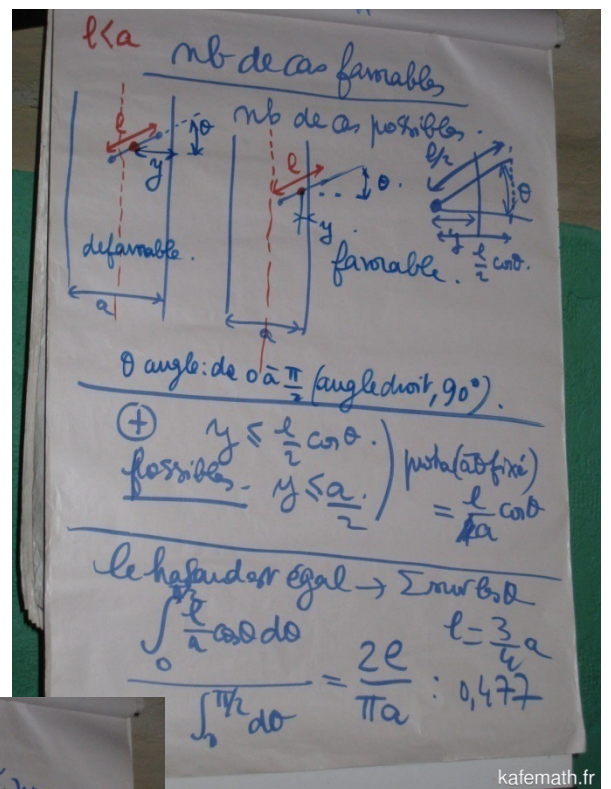 l<a
nb de cas favorables
nb de cas possibles.
l θ
y
defavorable.
a
l θ.
y
favorable.
a
l/2
θ
y l/2 cosθ.
θ angle: de 0 à π/2 (angle droit, 90°).
+ y ≤ l/2 cosθ.
possibles. y ≤ a/2.
proba(à θ fixé)
= l/a cosθ
le hasard est égal → Σ sur les θ
∫₀^π/2 l/a cosθ dθ
∫₀^π/2 dθ
= 2l/πa : 0,477
l = 3/4 a
kafemath.fr